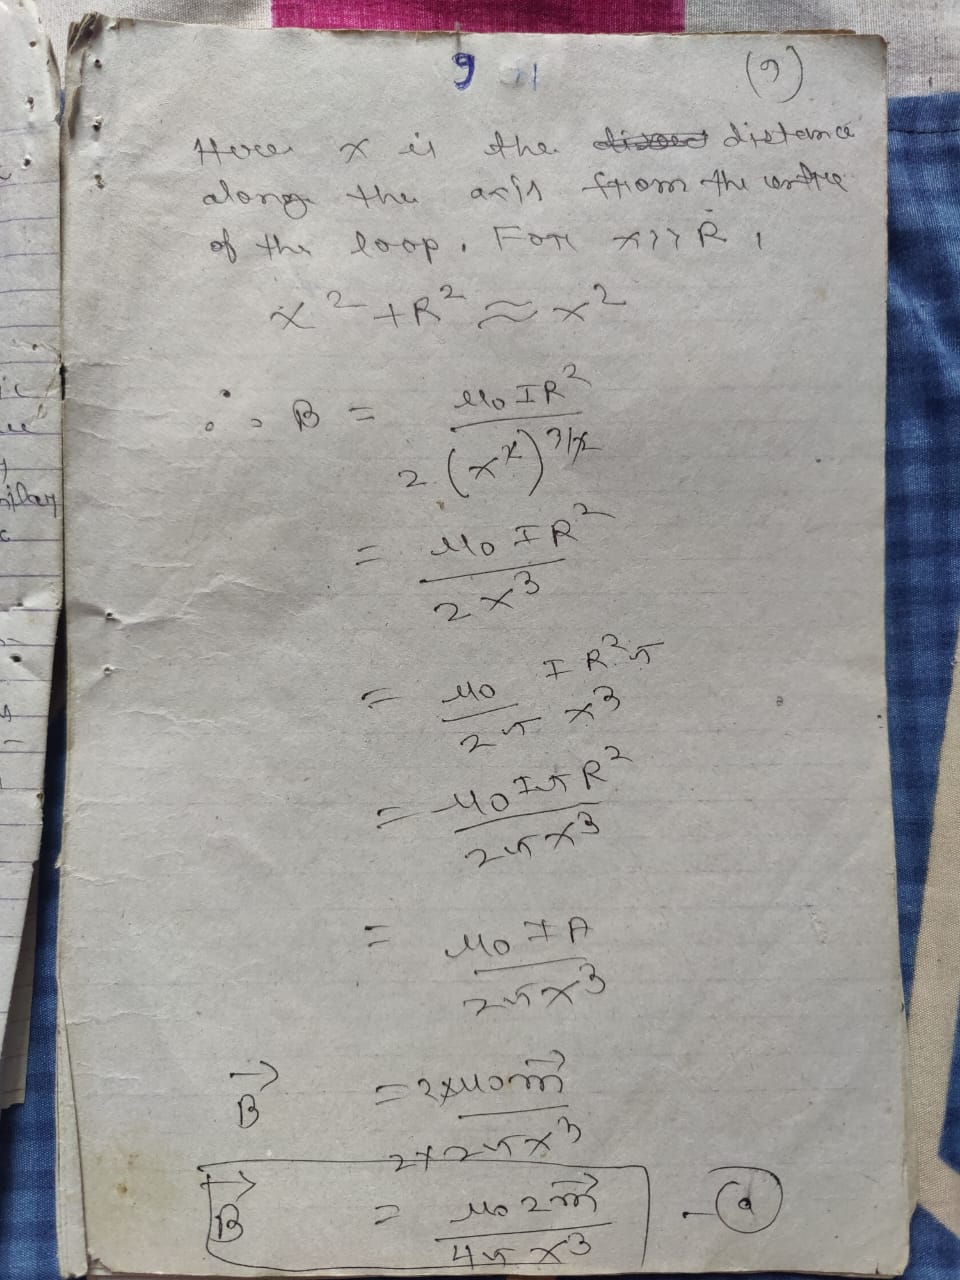 9
(9)
Here x is the distance
along the axis from the centre
of the loop. For x>>R,
x² + R² ≈ x²
∴ B = μ₀IR² / 2(x²)^3/2
= μ₀IR² / 2x³
= μ₀/2π IR²π/x³
= μ₀IπR² / 2πx³
= μ₀IA / 2πx³
B⃗ = 2×μ₀m⃗ / 2×2πx³
B⃗ = μ₀2m⃗ / 4πx³ - (a)